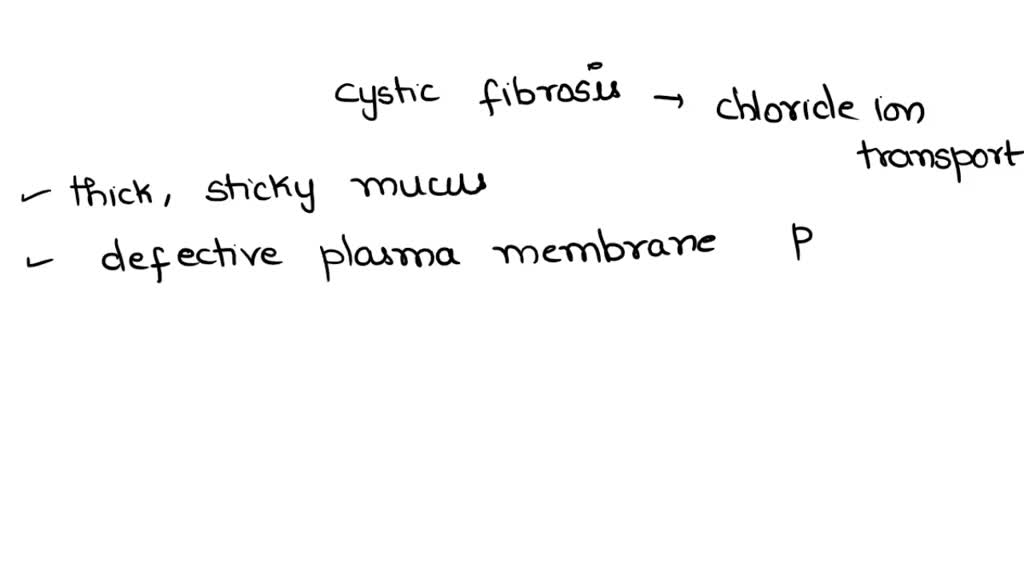 cystic fibrosis → chloride ion
transport
✓ thick, sticky mucus
✓ defective plasma membrane P